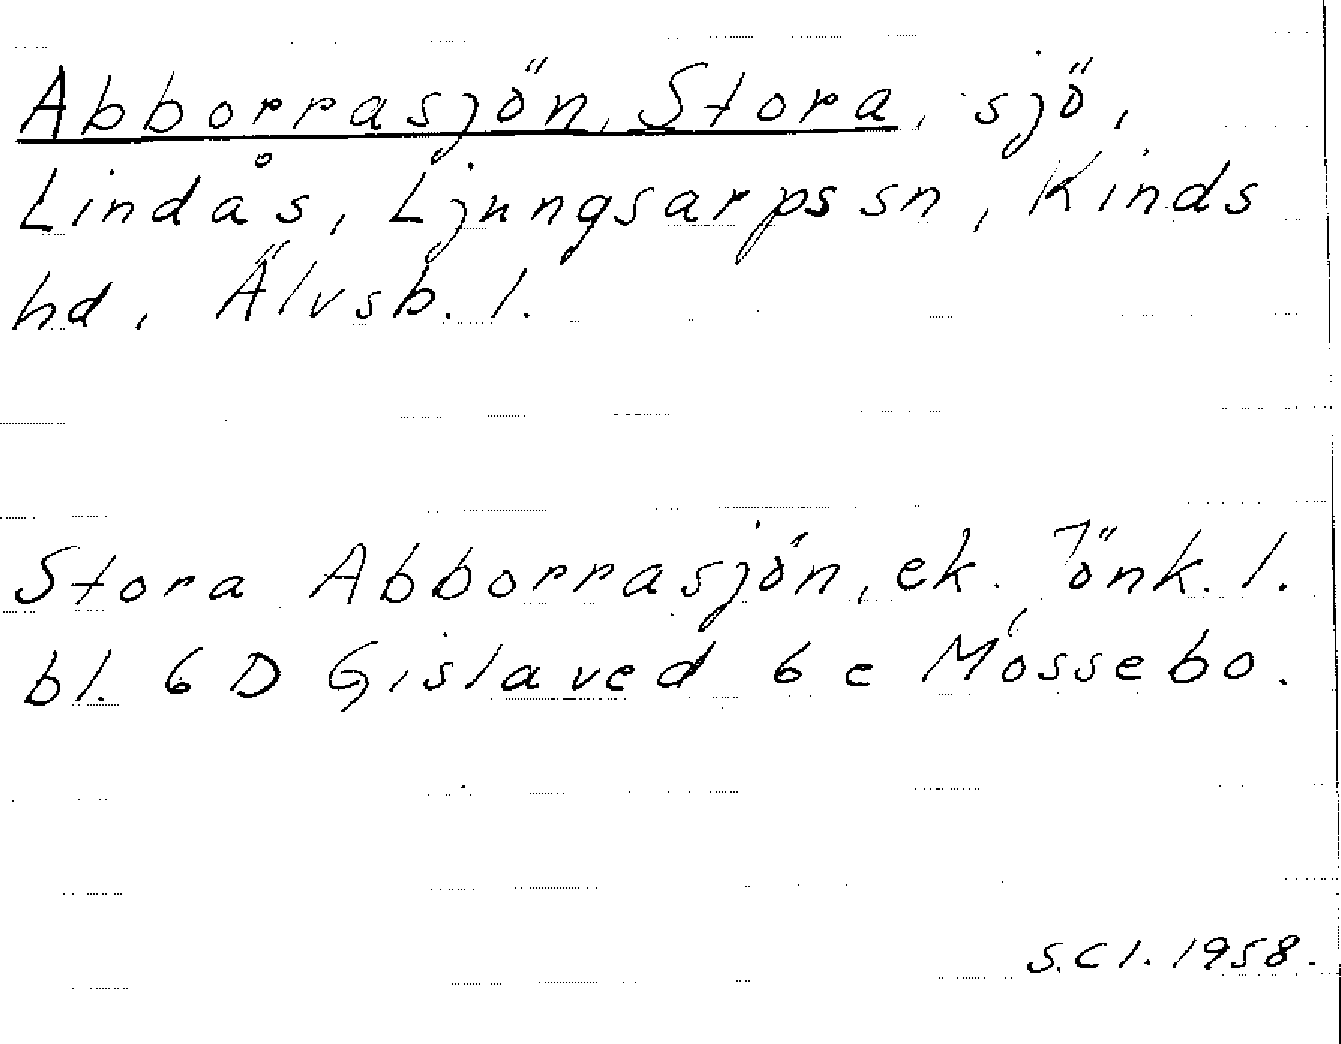 Abborrasjön, Stora, sjö,
Lindås, Ljungsarps sn, Kinds
hd, Älvsb. l.
Stora Abborrasjön, ek. Jönk. l.
bl. 6 D Gislaved 6 e Mossebo.
S.C l. 1958.